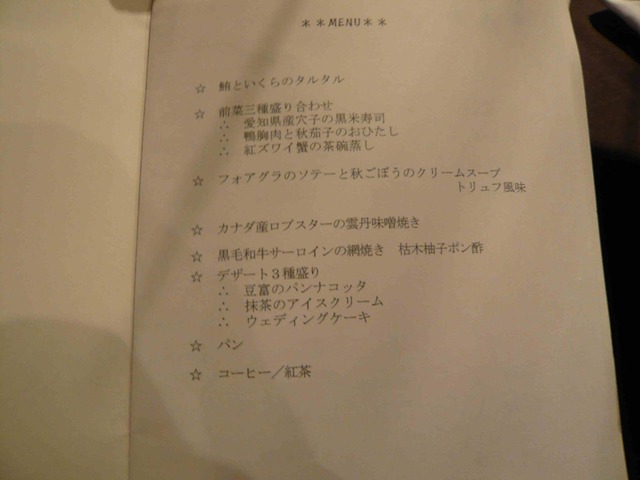 ＊＊MENU＊＊
☆ 鮪といくらのタルタル
☆ 前菜三種盛り合わせ
∴ 愛知県産穴子の黒米寿司
∴ 鴨胸肉と秋茄子のおひたし
∴ 紅ズワイ蟹の茶碗蒸し
☆ フォアグラのソテーと秋ごぼうのクリームスープ
トリュフ風味
☆ カナダ産ロブスターの雲丹味噌焼き
☆ 黒毛和牛サーロインの網焼き 枯木柚子ポン酢
☆ デザート３種盛り
∴ 豆富のパンナコッタ
∴ 抹茶のアイスクリーム
∴ ウェディングケーキ
☆ パン
☆ コーヒー／紅茶